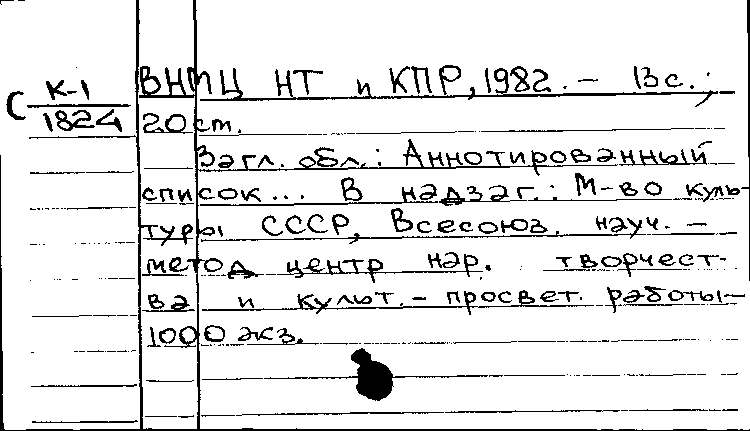 С К-1/1824
ВНМЦ НТ и КПР, 1982. – 13 с.;
20 см.
Загл. обл.: Аннотированный
список... В надзаг.: М-во куль-
туры СССР, Всесоюз. науч. –
метод центр нар. творчест-
ва и культ. – просвет. работы–
1000 экз.